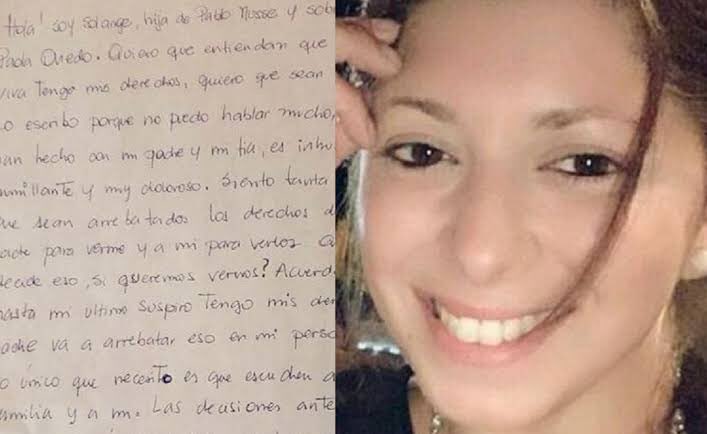 Hola! Soy Solange, hija de Pablo Musse y sob
Paola Oviedo. Quiero que entiendan que
viva Tengo mis derechos, quiero que sean
o escribo porque no puedo hablar mucho,
an hecho con mi padre y mi tia, es inhu
umillante y muy doloroso. Siento tanta
ue sean arrebatados los derechos d
adre para verme y a mi para verlos
decide eso, si queremos vernos? Acuerd
hasta mi ultimo suspiro Tengo mis der
adie va a arrebatar eso en mi perso
o único que necesito es que escuchen a
amilia y a mi. Las decisiones ante